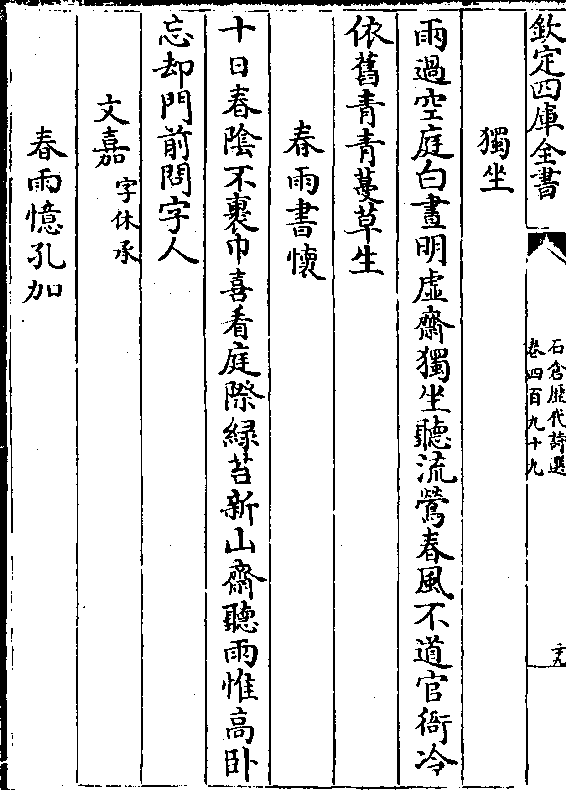 欽定四庫全書
石倉歴代詩選
卷四百九十九
獨坐
雨過空庭白晝明虛齋獨坐聽流鶯春風不道官衙冷
依舊青青蔓草生
春雨書懐
十日春陰不裹巾喜看庭際緑苔新山齋聽雨惟高卧
忘却門前問字人
文嘉字休承
春雨憶孔加